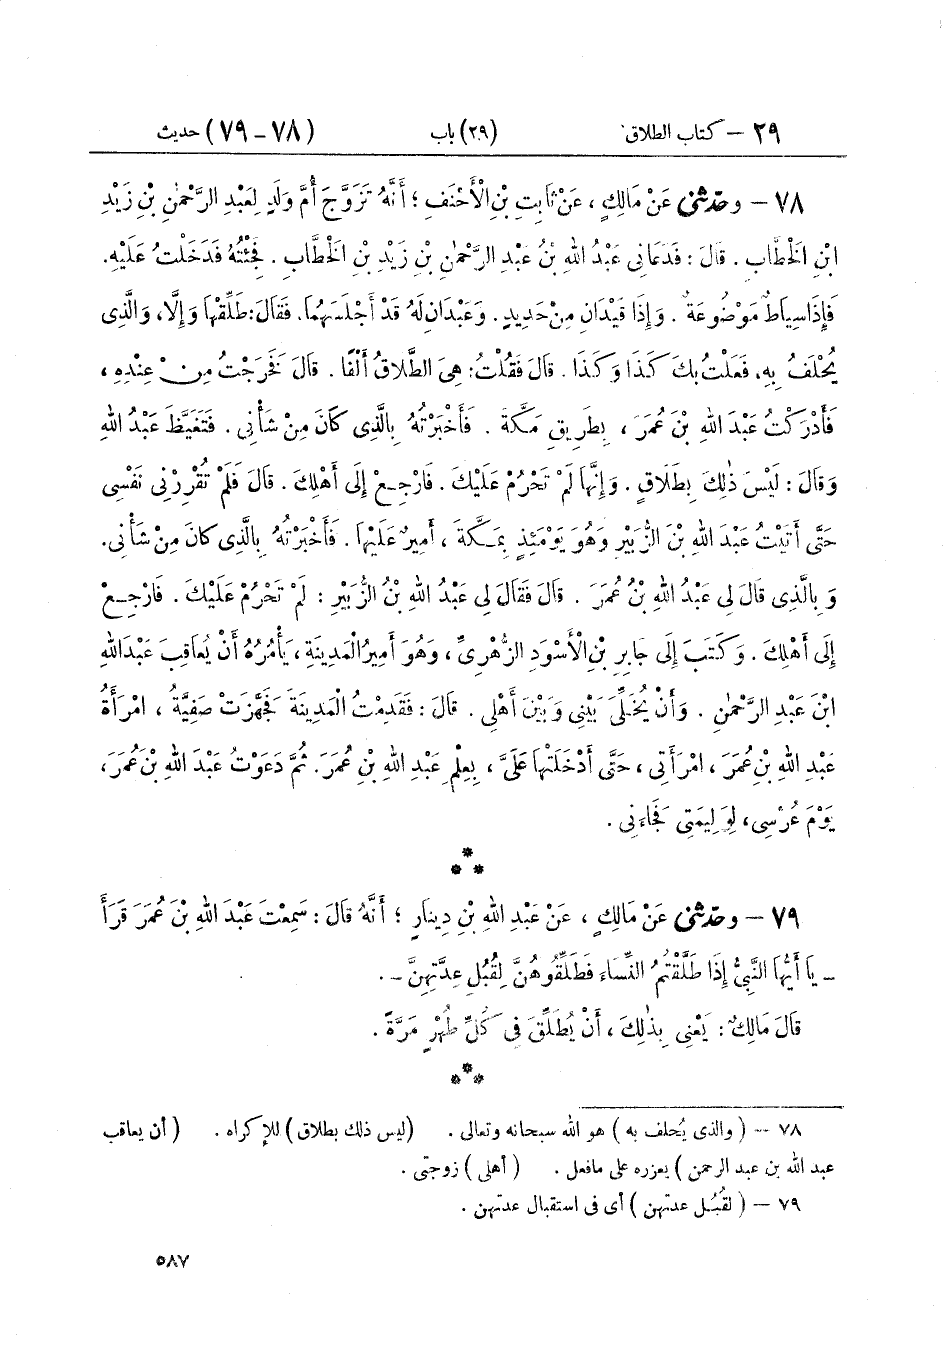 ٢٩ – كتاب الطلاق (٢٩) باب (٧٨ – ٧٩) حديث
٧٨ – وحدّثنى عَنْ مَالِكٍ ، عَنْ ثَابِتِ بْنِ الْأَحْنَفِ ؛ أَنَّهُ تَزَوَّجَ أُمَّ وَلَدٍ لِعَبْدِ الرَّحْمٰنِ بْنِ زَيْدِ
ابْنِ الْخَطَّابِ . قَالَ : فَدَعَانِى عَبْدُ اللهِ بْنُ عَبْدِ الرَّحْمٰنِ بْنِ زَيْدِ بْنِ الْخَطَّابِ . فَجِئْتُهُ فَدَخَلْتُ عَلَيْهِ.
فَإِذَا سِيَاطٌ مَوْضُوعَةٌ . وَإِذَا قَيْدَانِ مِنْ حَدِيدٍ. وَعَبْدَانِ لَهُ قَدْ أَجْلَسَهُمَا. فَقَالَ: طَلِّقْهَا وَإِلَّا، وَالَّذِى
يُحْلَفُ بِهِ، فَعَلْتُ بِكَ كَذَا وَكَذَا . قَالَ فَقُلْتُ: هِىَ الطَّلَاقُ أَلْفًا . قَالَ فَخَرَجْتُ مِنْ عِنْدِهِ ،
فَأَدْرَكْتُ عَبْدَ اللهِ بْنَ عُمَرَ ، بِطَرِيقِ مَكَّةَ . فَأَخْبَرْتُهُ بِالَّذِى كَانَ مِنْ شَأْنِى . فَتَغَيَّظَ عَبْدُ اللهِ
وَقَالَ : لَيْسَ ذٰلِكَ بِطَلَاقٍ . وَإِنَّهَا لَمْ تَحْرُمْ عَلَيْكَ . فَارْجِعْ إِلَى أَهْلِكَ . قَالَ فَلَمْ تُقْرِرْنِى نَفْسِى
حَتَّى أَتَيْتُ عَبْدَ اللهِ بْنَ الزُّبَيْرِ وَهُوَ يَوْمَئِذٍ بِمَكَّةَ ، أَمِيرٌ عَلَيْهَا . فَأَخْبَرْتُهُ بِالَّذِى كَانَ مِنْ شَأْنِى.
وَبِالَّذِى قَالَ لِى عَبْدُ اللهِ بْنُ عُمَرَ . قَالَ فَقَالَ لِى عَبْدُ اللهِ بْنُ الزُّبَيْرِ : لَمْ تَحْرُمْ عَلَيْكَ . فَارْجِعْ
إِلَى أَهْلِكَ . وَكَتَبَ إِلَى جَابِرِ بْنِ الْأَسْوَدِ الزُّهْرِىِّ ، وَهُوَ أَمِيرُ الْمَدِينَةِ ، يَأْمُرُهُ أَنْ يُعَاقِبَ عَبْدَ اللهِ
ابْنَ عَبْدِ الرَّحْمٰنِ . وَأَنْ يُخَلِّىَ بَيْنِى وَبَيْنَ أَهْلِى . قَالَ : فَقَدِمْتُ الْمَدِينَةَ فَجَهَّزَتْ صَفِيَّةُ ، امْرَأَةُ
عَبْدِ اللهِ بْنِ عُمَرَ ، امْرَأَتِى ، حَتَّى أَدْخَلَتْهَا عَلَىَّ ، بِعِلْمِ عَبْدِ اللهِ بْنِ عُمَرَ. ثُمَّ دَعَوْتُ عَبْدَ اللهِ بْنَ عُمَرَ،
يَوْمَ عُرْسِى، لِوَلِيمَتِى فَجَاءَنِى .
٧٩ – وحدّثنى عَنْ مَالِكٍ ، عَنْ عَبْدِ اللهِ بْنِ دِينَارٍ ؛ أَنَّهُ قَالَ : سَمِعْتُ عَبْدَ اللهِ بْنَ عُمَرَ قَرَأَ
– يَا أَيُّهَا النَّبِىُّ إِذَا طَلَّقْتُمُ النِّسَاءَ فَطَلِّقُوهُنَّ لِقُبُلِ عِدَّتِهِنَّ – .
قَالَ مَالِكٌ: يَعْنِى بِذٰلِكَ ، أَنْ يُطَلِّقَ فِى كُلِّ طُهْرٍ مَرَّةً .
٧٨ – ( والذى يُحلف به ) هو الله سبحانه وتعالى . (ليس ذلك بطلاق) للإكراه . ( أن يعاقب
عبد الله بن عبد الرحمن ) يعزره على مافعل . ( أهلى ) زوجتى .
٧٩ – ( لقُبُل عدتهن ) أى فى استقبال عدتهن .
٥٨٧